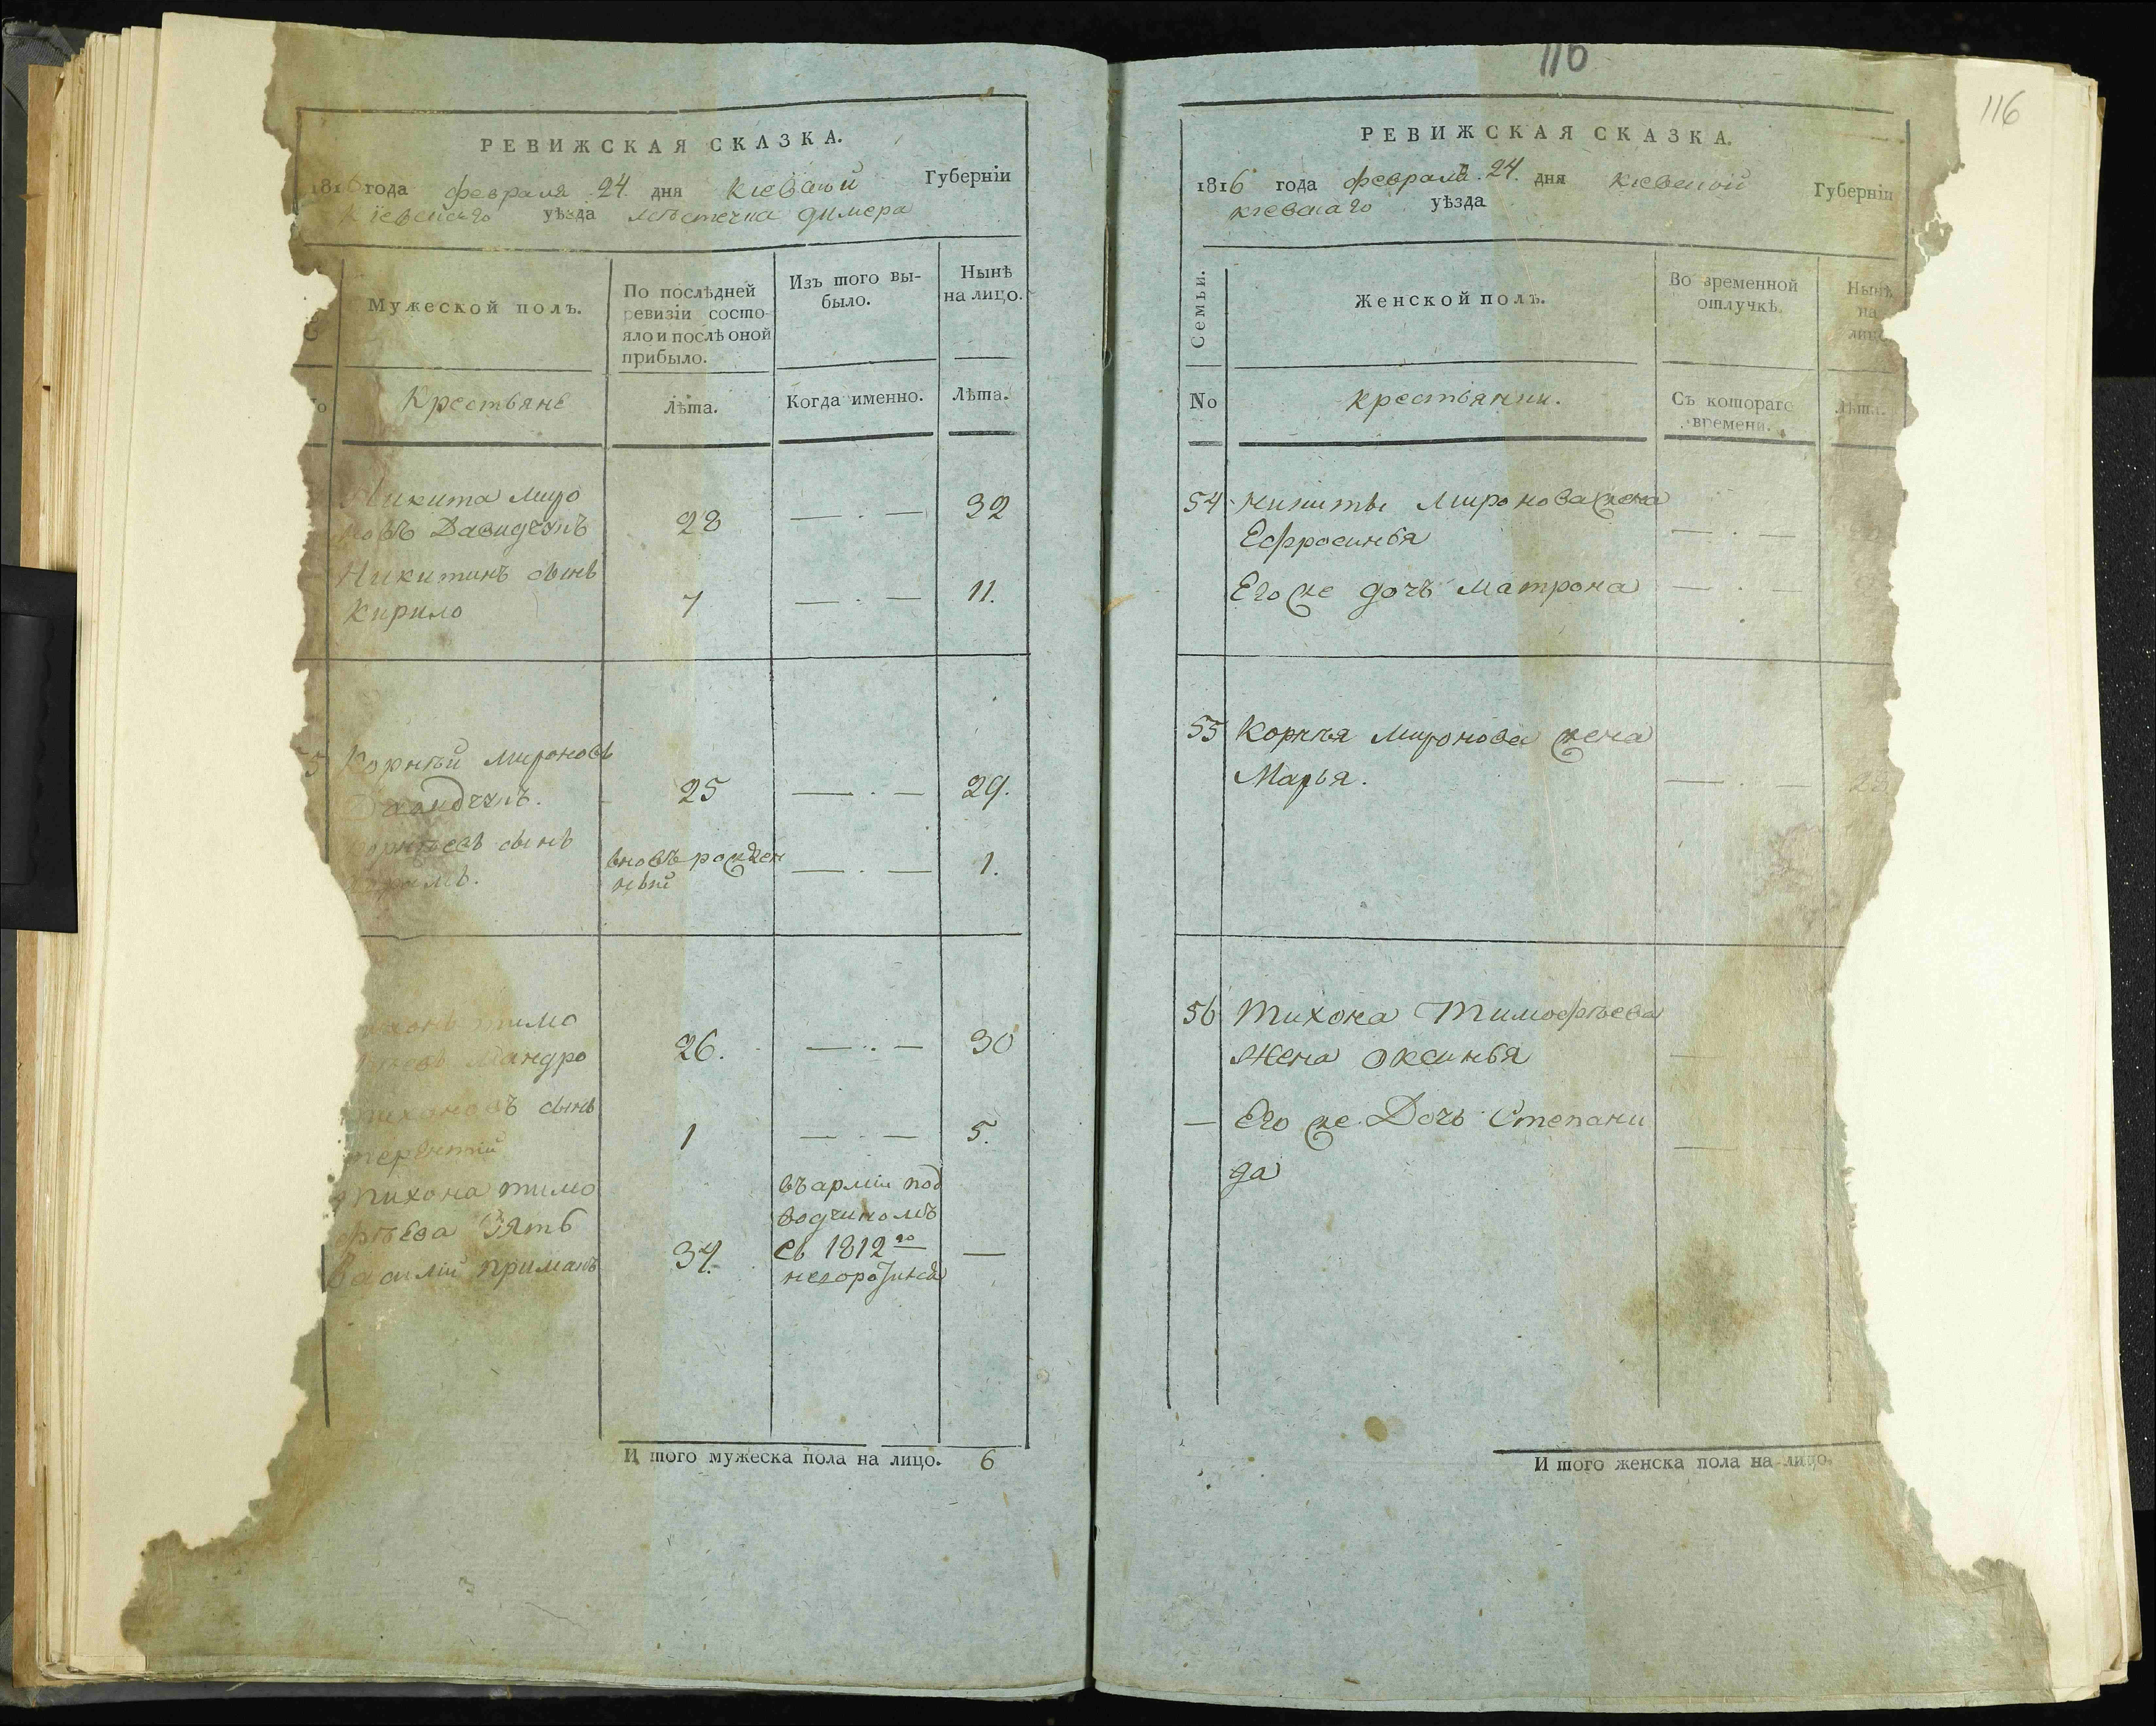 РЕВИЖСКАЯ СКАЗКА.
1816 года февраля 24 дня Кіевской Губерніи
Кіевскаго уѣзда мѣстечка димера
Мужеской полъ.
По послѣдней
ревизіи состо-
яло и послѣ оной
прибыло.
Изъ того вы-
было.
Нынѣ
на лицо.
Крестьяне
Лѣта.
Когда именно.
Лѣта.
Никита миро
новъ Давидчикъ 28 — . — 32
Никитинъ сынъ
Кирило 7 — . — 11.
Корнѣй мироновъ
25 — . — 29.
сынъ вновь рожден
ный — . — 1.
тимо
Мандро 26. — . — 30
тихоновъ сынъ
терентій 1 — . — 5.
тихона тимо
фѣева Зять
Василій 34. —
въ арміи под
водчикомъ
съ 1812го
И того мужеска пола на лицо. 6
116
116
РЕВИЖСКАЯ СКАЗКА.
1816 года февраля 24. дня кіевской Губерніи
кіевскаго уѣзда
Семьи.
Женской полъ.
Во временной
отлучкѣ.
Нынѣ
на
лицо
No
крестьянки.
Съ котораго
времени.
Лѣта.
54 никиты миронова жена
Ефросинья — . —
Его же дочь матрона — . —
55 Корнѣя миронова жена
Марья. — . —
56 Тихона Тимофѣева
Жена Оксинья —
— Его же Дочь Степани
да
И того женска пола на лицо.